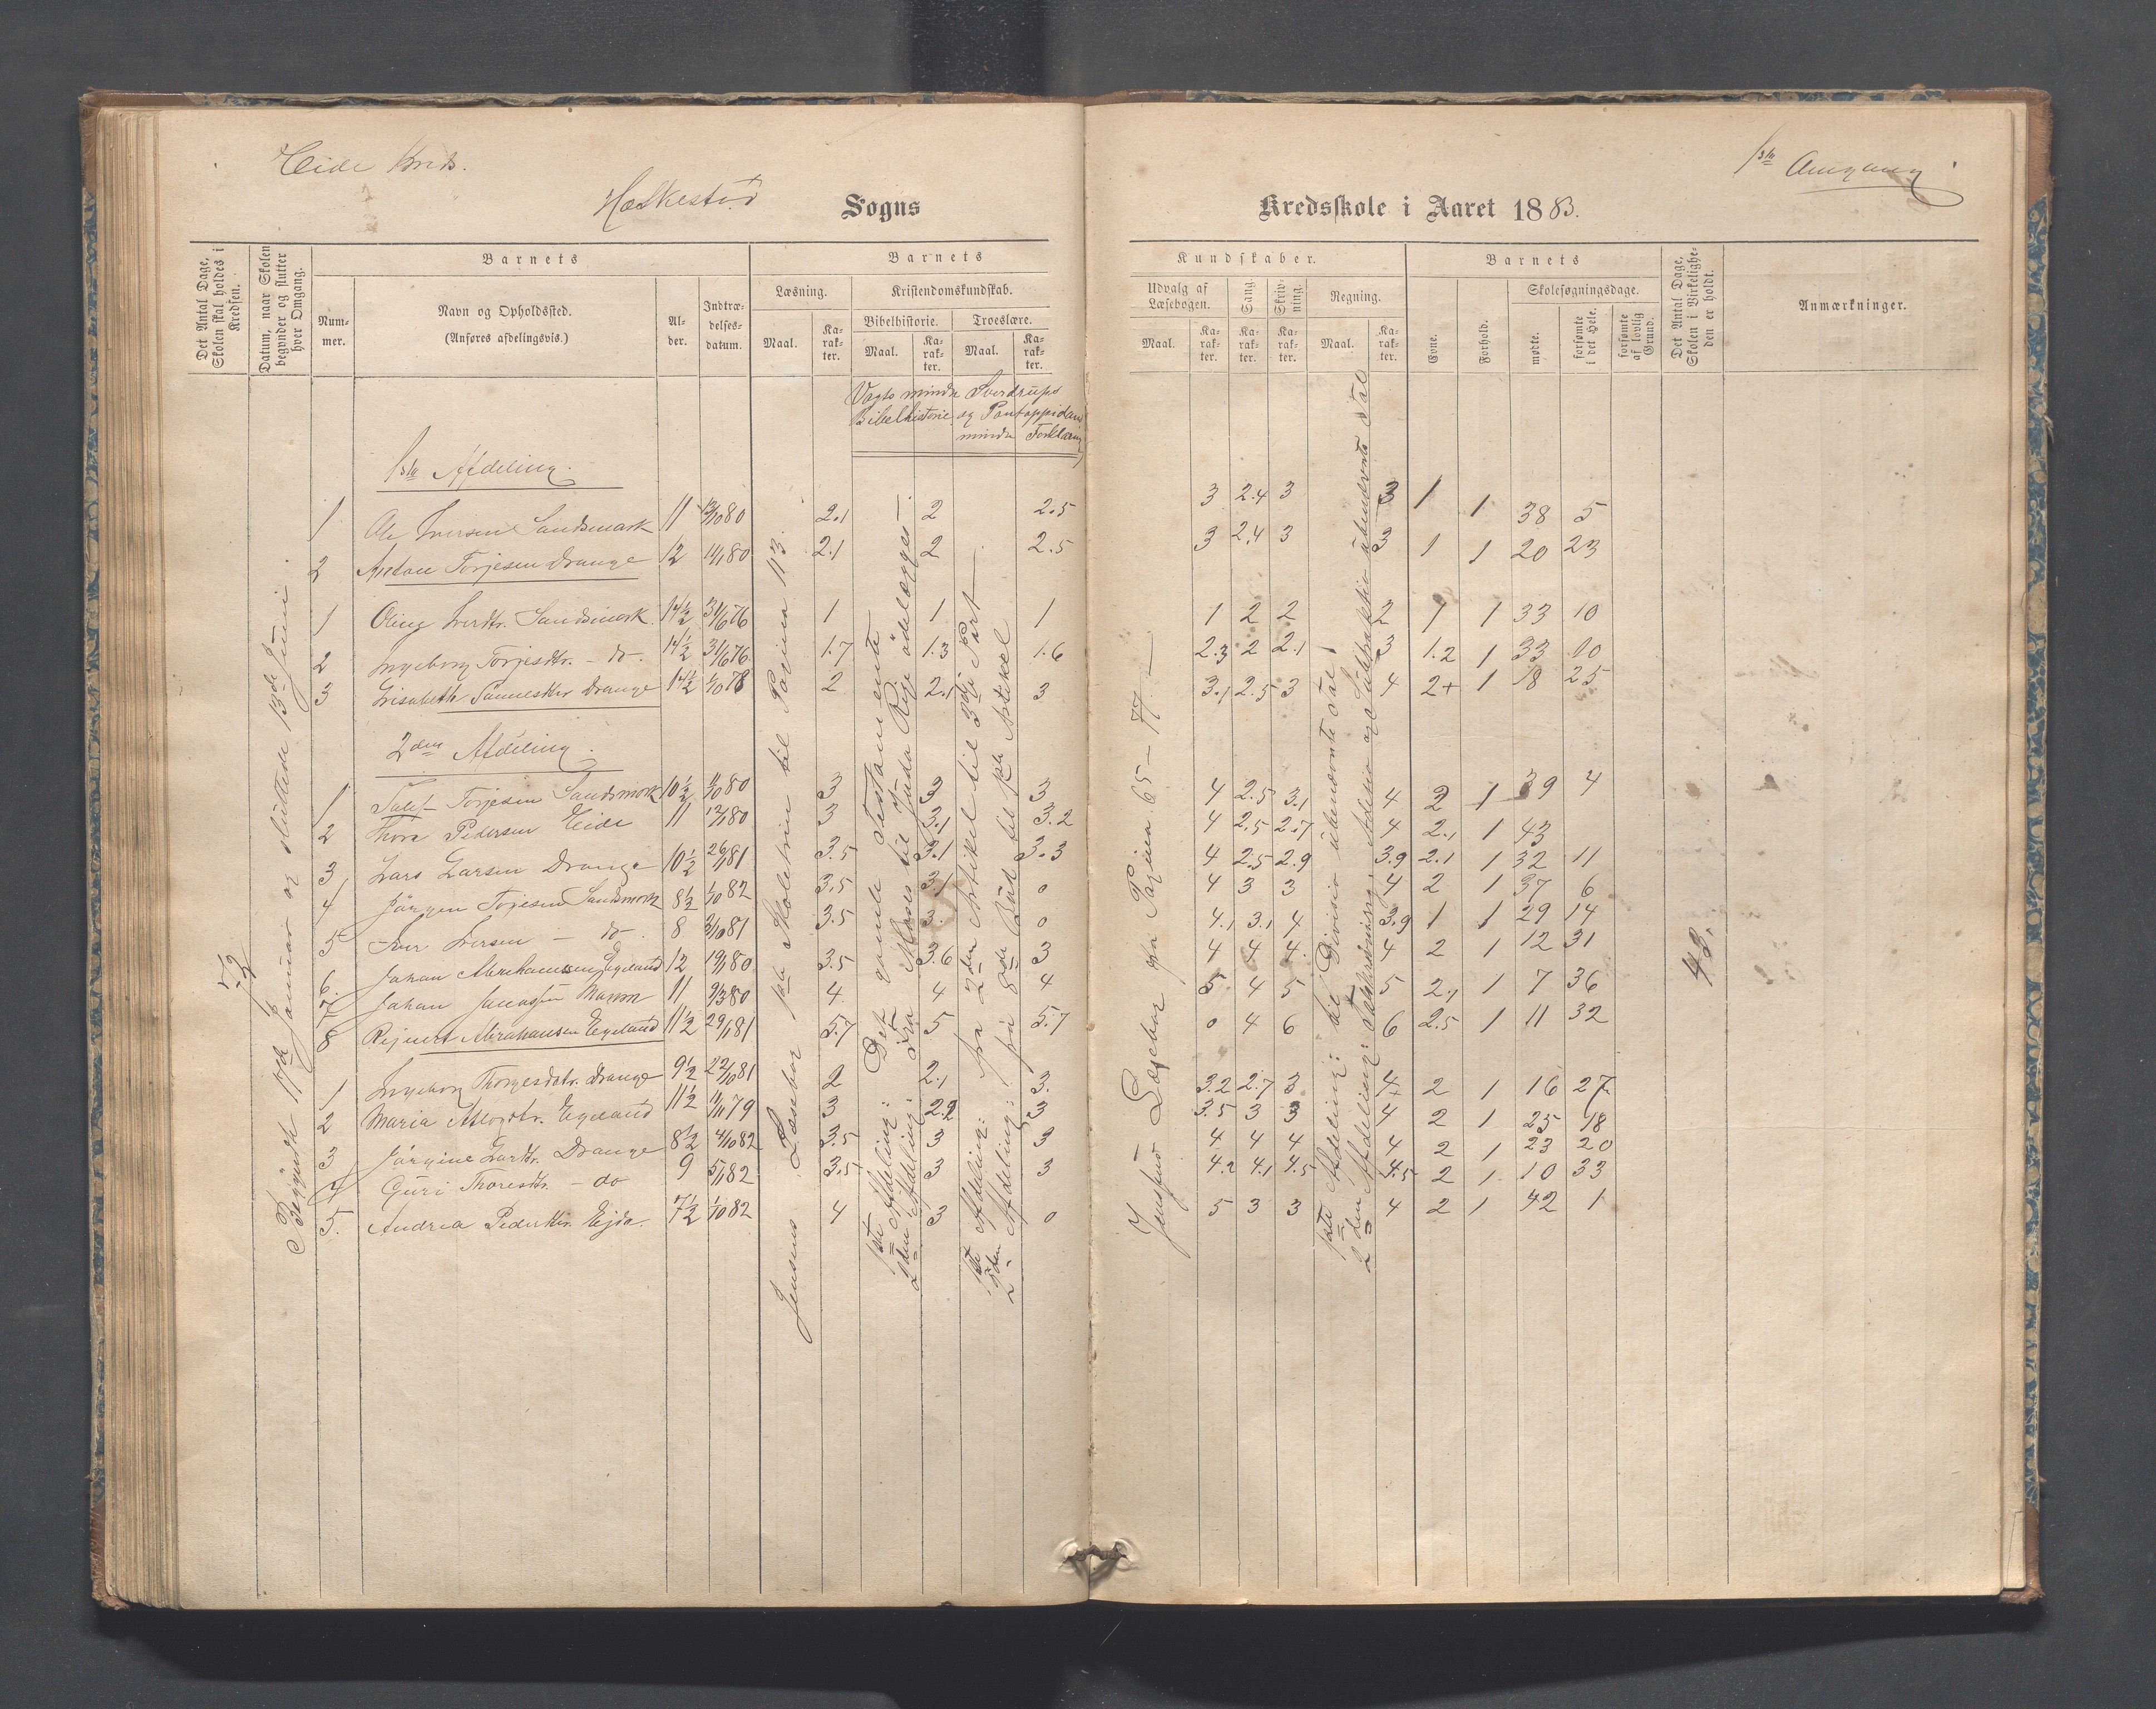 Eide Kreds.
1ste Omgang
Heskestad Sogns Kredsskole i Aaret 1883.
Det Antal Dage, Skolen skal holdes i Kredsen.
Datum, naar Skolen begynder og slutter hver Omgang.
Barnets
Nummer.
Navn og Opholdssted.
(Anføres afdelingsvis.)
Alder.
Indtrædelsesdatum.
Barnets
Læsning.
Maal.
Karakter.
Kristendomskundskab.
Bibelhistorie.
Maal.
Karakter.
Troeslære.
Maal.
Karakter.
Kundskaber.
Udvalg af Læsebogen.
Maal.
Karakter.
Sang.
Karakter.
Skrivning.
Karakter.
Regning.
Maal.
Karakter.
Barnets
Evne.
Forhold.
Skolesøgningsdage.
mødte.
forsømte i det Hele.
forsømte af lovlig Grund.
Det Antal Dage, Skolen i Virkeligheden er holdt.
Anmærkninger.
Vogts mindre Bibelhistorie
Sverdrups og Pontoppidans mindre Forklaring
72
Begyndte 11te Januar og sluttede 13de Juni.
Jensens Læsebog, Skoletrin til Pagina 113.
1ste Afdeling: Det gamle Testamente
2den Afdeling: Fra Moses til Juda Rige ødelægges
1ste Afdeling: fra 2den Artikel til 3die Part
2den Afdeling: fra 8de Bud til Artikel
Jensens Læsebog fra Pagina 65–77
1ste Afdeling: til Division ubenævnte Tal
2den Afdeling: Addition og Subtraktion ubenævnte Tal
1ste Afdeling.
1 Ole Iversen Sandsmark 11 13/10 80 2.1 2 2.5 3 2.4 3 3 1 1 38 5
2 Anton Torjesen Drange 12 11/1 80 2.1 2 2.5 3 2.4 3 3 1 1 20 23
1 Oline Iverdtr. Sandsmark 14½ 31/6 76 1 1 1 1 2 2 2 1 1 33 10
2 Ingeborg Torjesdtr. – do – 14½ 31/6 76 1.7 1.3 1.6 2.3 2 2.1 3 1.2 1 33 10
3 Lisabeth Drange 14½ 1/10 78 2 2.1 3 3.1 2.5 3 4 2+ 1 18 25
2den Afdeling.
1 Torjesen Sandsmork 10½ 1/10 80 3 3 3 4 2.5 3.1 4 2 1 39 4
2 Thore Pedersen Eide 11 12/1 80 3 3.1 3.2 4 2.5 2.7 4 2.1 1 43
3 Lars Larsen Drange 10½ 26/1 81 3.5 3.1 3.3 4 2.5 2.9 3.9 2.1 1 32 11
4 Jørgen Torjesen Sandsmork 8½ 1/10 82 3.5 3.1 0 4 3 3 4 2 1 37 6
5 Iver Iversen – do – 8 31/10 81 3.5 3. 0 4.1 3.1 4 3.9 1 1 29 14
6. Johan Abrahamsen Egeland 12 19/1 80 3.5 3.6 3 4 4 4 4 2 1 12 31
7 Johan 11 9/3 80 4 4 4 5 4 5 5 2.1 1 7 36
8 Rejnert Abrahamsen Egeland 11½ 29/1 81 5.7 5 5.7 0 4 6 6 2.5 1 11 32
1 Ingeborg Thorgesdtr. Drange 9½ 22/10 81 2 2.1 3. 3.2 2.7 3 4 2 1 16 27
2 Maria Egeland 11½ 11/11 79 3 2.2 3 3.5 3 3 4 2 1 25 18
3 Jørgine Larsdtr. Drange 8½ 4/10 82 3.5 3 3 4 4 4 4 2 1 23 20
4 Guri Thoresdtr. – do 9 5/1 82 3.5 3 3 4.2 4.1 4.5 4.5 2 1 10 33
5. Andrea Pedersdtr. Ejde. 7½ 1/10 82 4 3 0 5 3 3 4 2 1 42 1
43.